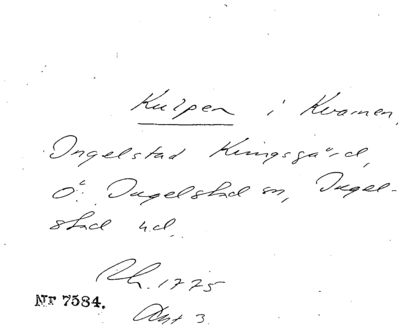 Kulpen i Kvarnen,
Ingelstad Kungsgård,
Ö. Ingelstad sn, Ingel-
stad hd.
Rh. 1775
Akt 3.
Nr 7584.